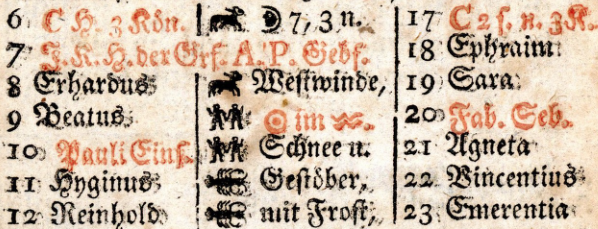 6 C H. 3 Kön. ☽ 7, 3 n. 17 C 2 ſ. n. 3 K.
7 J. K. H. der Grf. A. P. Gebſ. 18 Ephraim
8 Erhardus Weſtwinde, 19 Sara
9 Beatus ☉ im ♒. 20 Fab. Seb.
10 Pauli Einſ. Schnee u. 21 Agneta
11 Hyginus Geſtöber, 22 Vincentius
12 Reinhold mit Froſt, 23 Emerentia